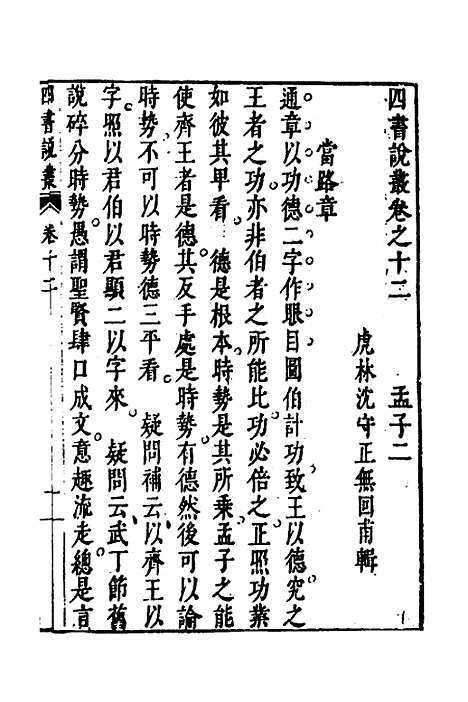 四書說叢卷之十二　　孟子二
虎林沈守正無回甫輯
當路章
通章以功德二字作眼目圖伯計功致王以德究之
王者之功亦非伯者之所能比功必倍之正照功業
如彼其卑看　德是根本時勢是其所乘孟子之能
使齊王者是德其反手處是時勢有德然後可以論
時勢不可以時勢德三平看　疑問補云以齊王以
字照以君伯以君顯二以字來　疑問云武丁節舊
說碎分時勢愚謂聖賢肆口成文意趣流走總是言
四書說叢　卷十二　一